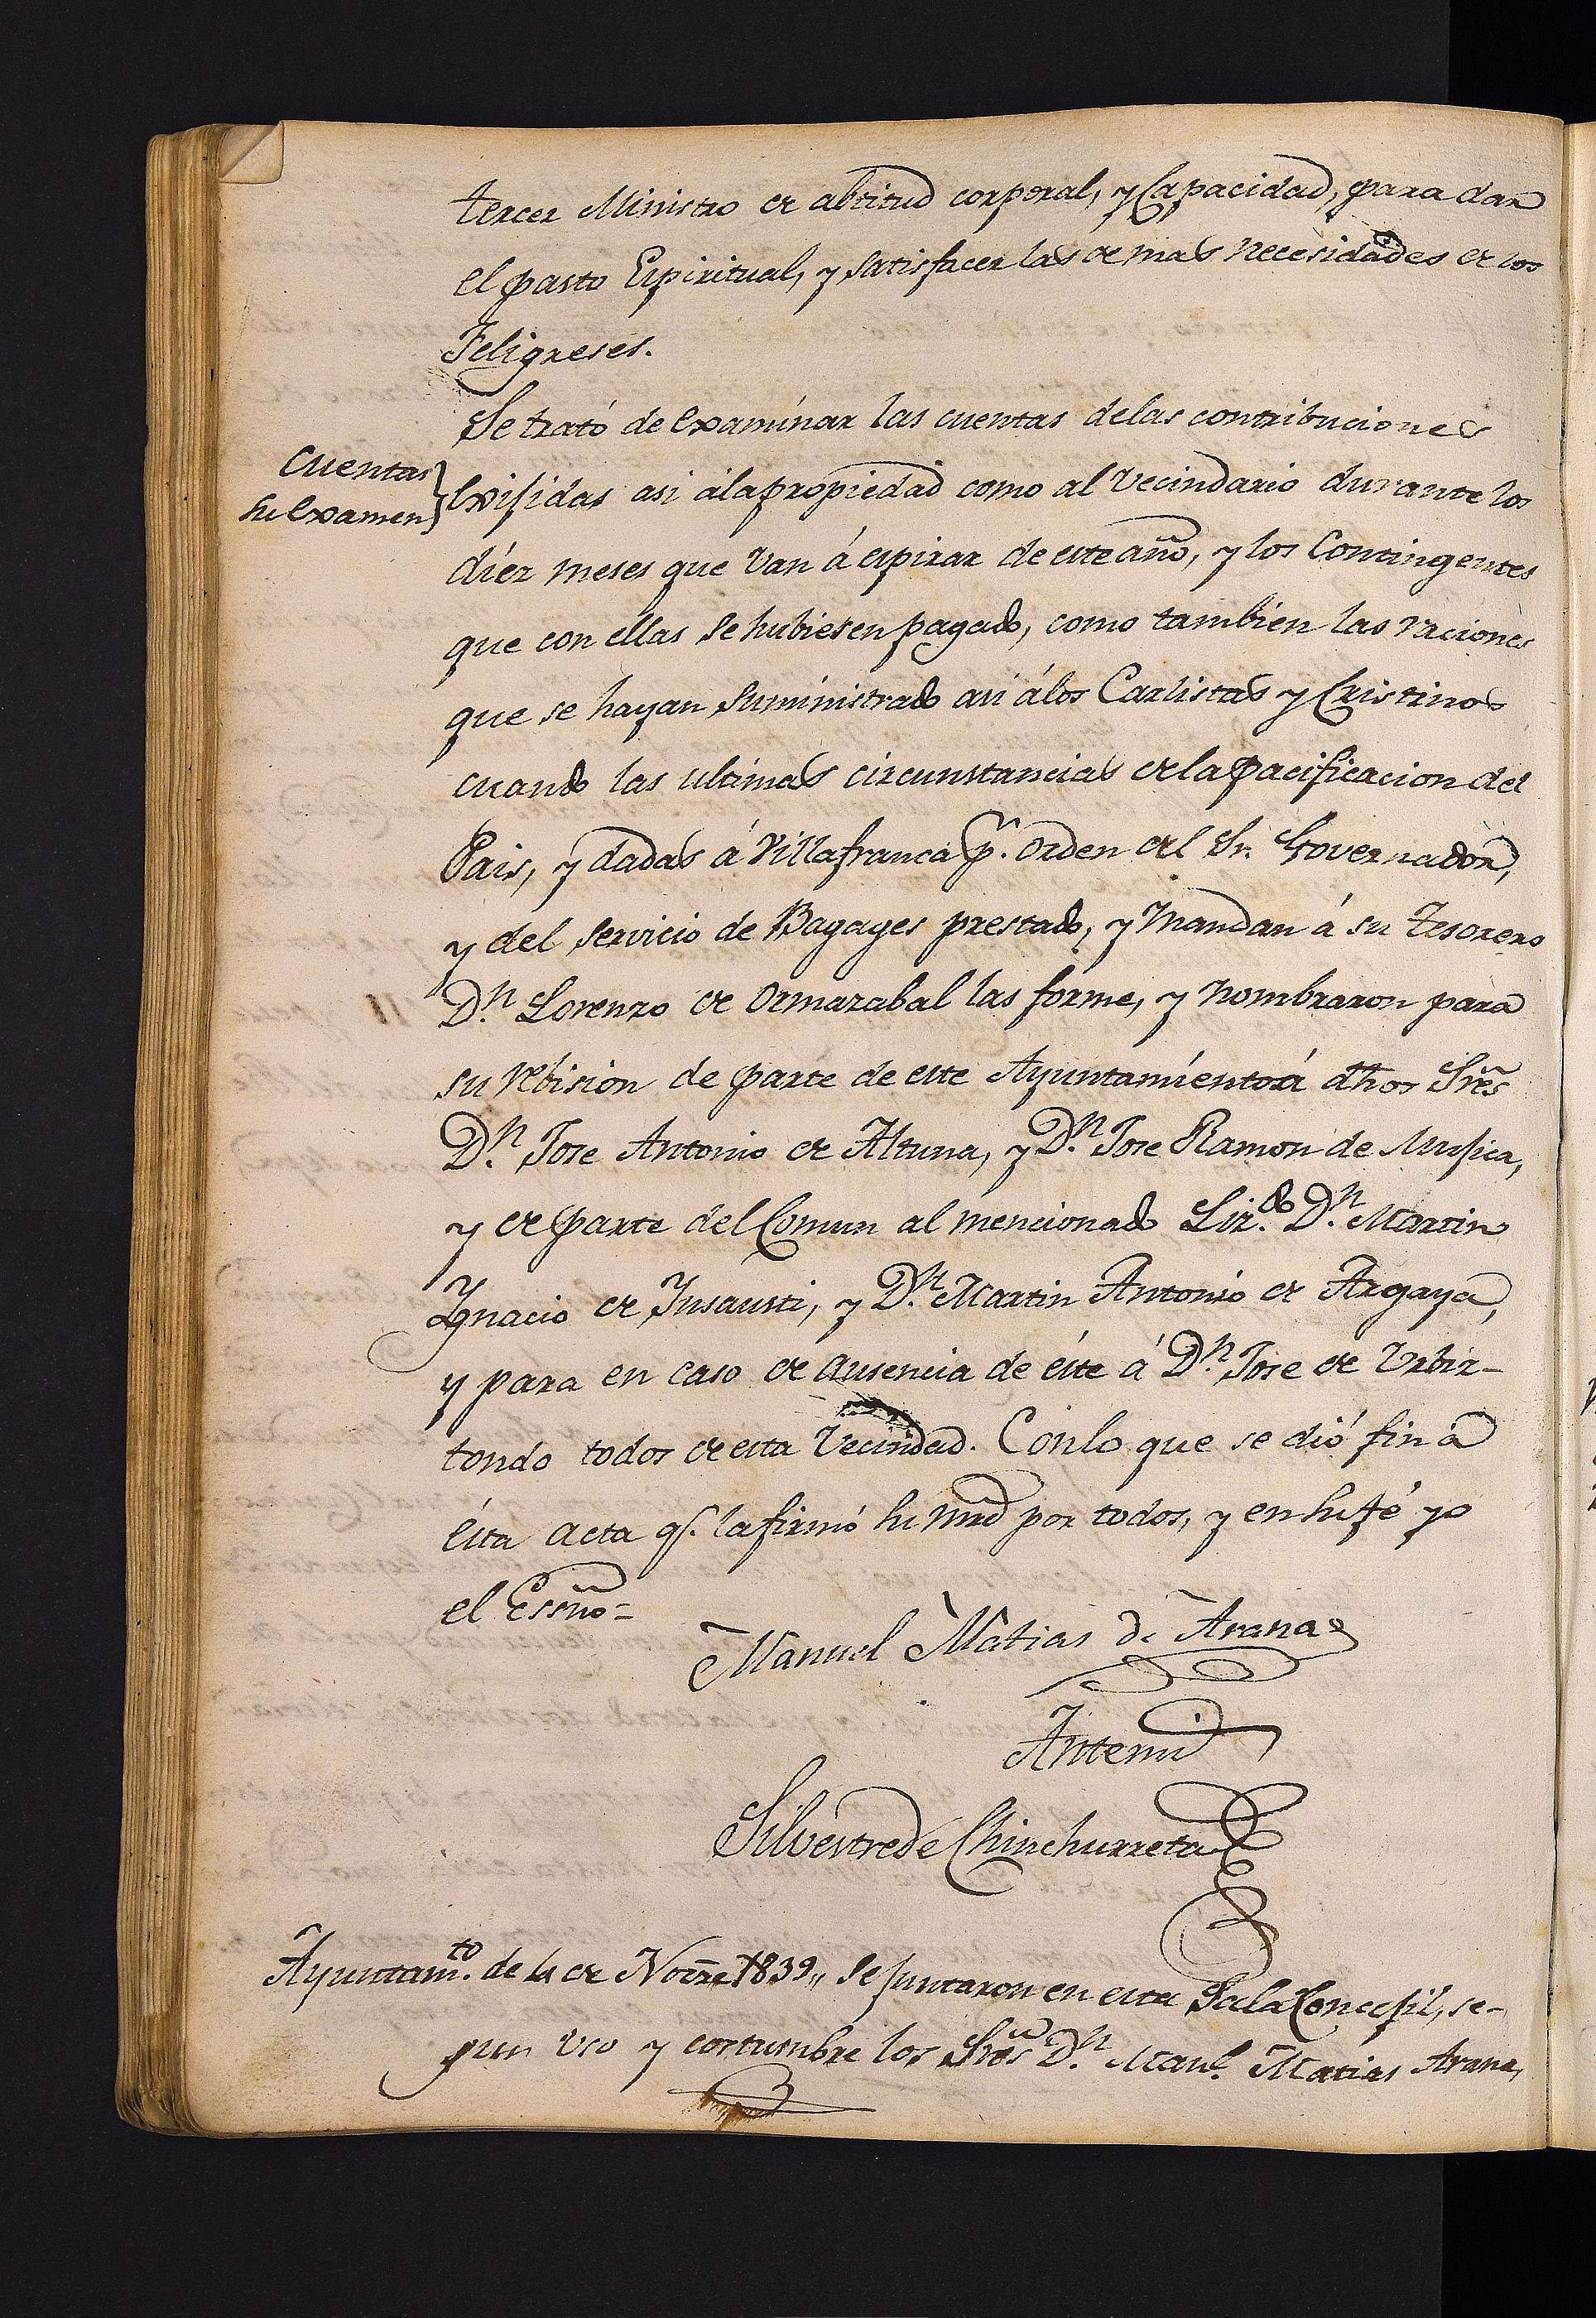 tercer Ministro de abtitud corporal, y Capacidad, para dar
el pasto Espiritual, y satisfacer las demas necesidades de los
Feligreses.
Se trató de examinar las cuentas delas contribuciones
Cuentas
su examen
exijidas asi álapropiedad como al Vecindario durante los
diez meses que van á espirar de este año, y los Contingentes
que con ellas se hubiesen pagado, como tambien las raciones
que se hayan suministrado asi álos Carlistas y Cristinos
cuando las ultimas circunstancias de la pacificacion del
Pais, y dadas á Villafranca pr. orden del Sr. Governador,
y del servicio de Bagages prestado, y mandan á su Tesorero
Dn. Lorenzo de Ormazabal las forme, y nombraron para
su rebision de parte de este Ayuntamiento á dhos Sres
Dn. Jose Antonio de Altuna, y Dn. Jose Ramon de Mujica,
y de parte del Comun al mencionado Liz.do Dn. Martin
Ygnacio de Insausti, y Dn. Martin Antonio de Argaya,
y para en caso de ausencia de éste á Dn. Jose de Urbiz-
tondo todos de esta Vecindad. Conlo que se dió fin á
ésta acta q. la firmó su mrd por todos, y en su fé yo
el Essno=
Manuel Matias de Arana
Antemi
Silvestre de Chinchurreta
Ayuntam.to de 4 de Nobre 1839,, se juntaron en esta Sala Concejil, se-
gun uso y costumbre los Sres Dn. Manl. Matias Arana,